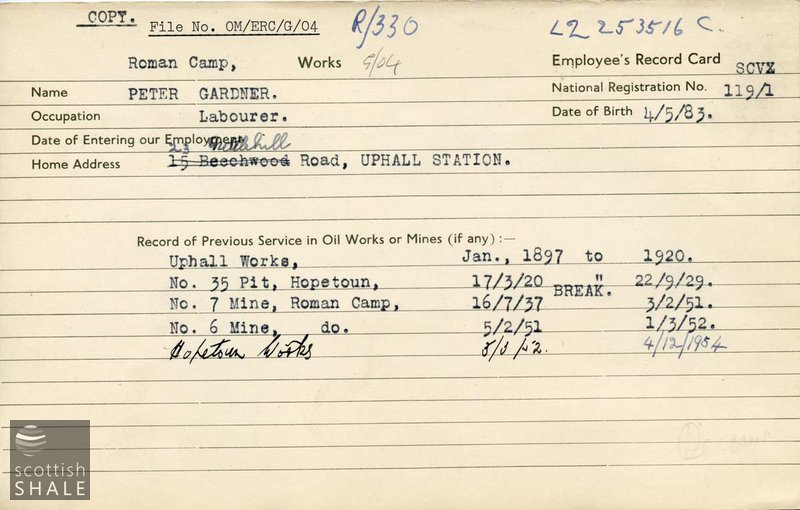 COPY. File No. OM/ERC/G/04 R/330 LZ 253516 C.
Roman Camp, Works G/04 Employee's Record Card SCVX
Name PETER GARDNER. National Registration No. 119/1
Occupation Labourer. Date of Birth 4/5/83.
Date of Entering our Employment
23 Nettlehill
Home Address 15 Beechwood Road, UPHALL STATION.
Record of Previous Service in Oil Works or Mines (if any) :—
Uphall Works, Jan., 1897 to 1920.
No. 35 Pit, Hopetoun, 17/3/20 " 22/9/29.
BREAK.
No. 7 Mine, Roman Camp, 16/7/37 3/2/51.
No. 6 Mine, do. 5/2/51 1/3/52.
Hopetoun Works 3/3/52. 4/12/1954
scottish
SHALE